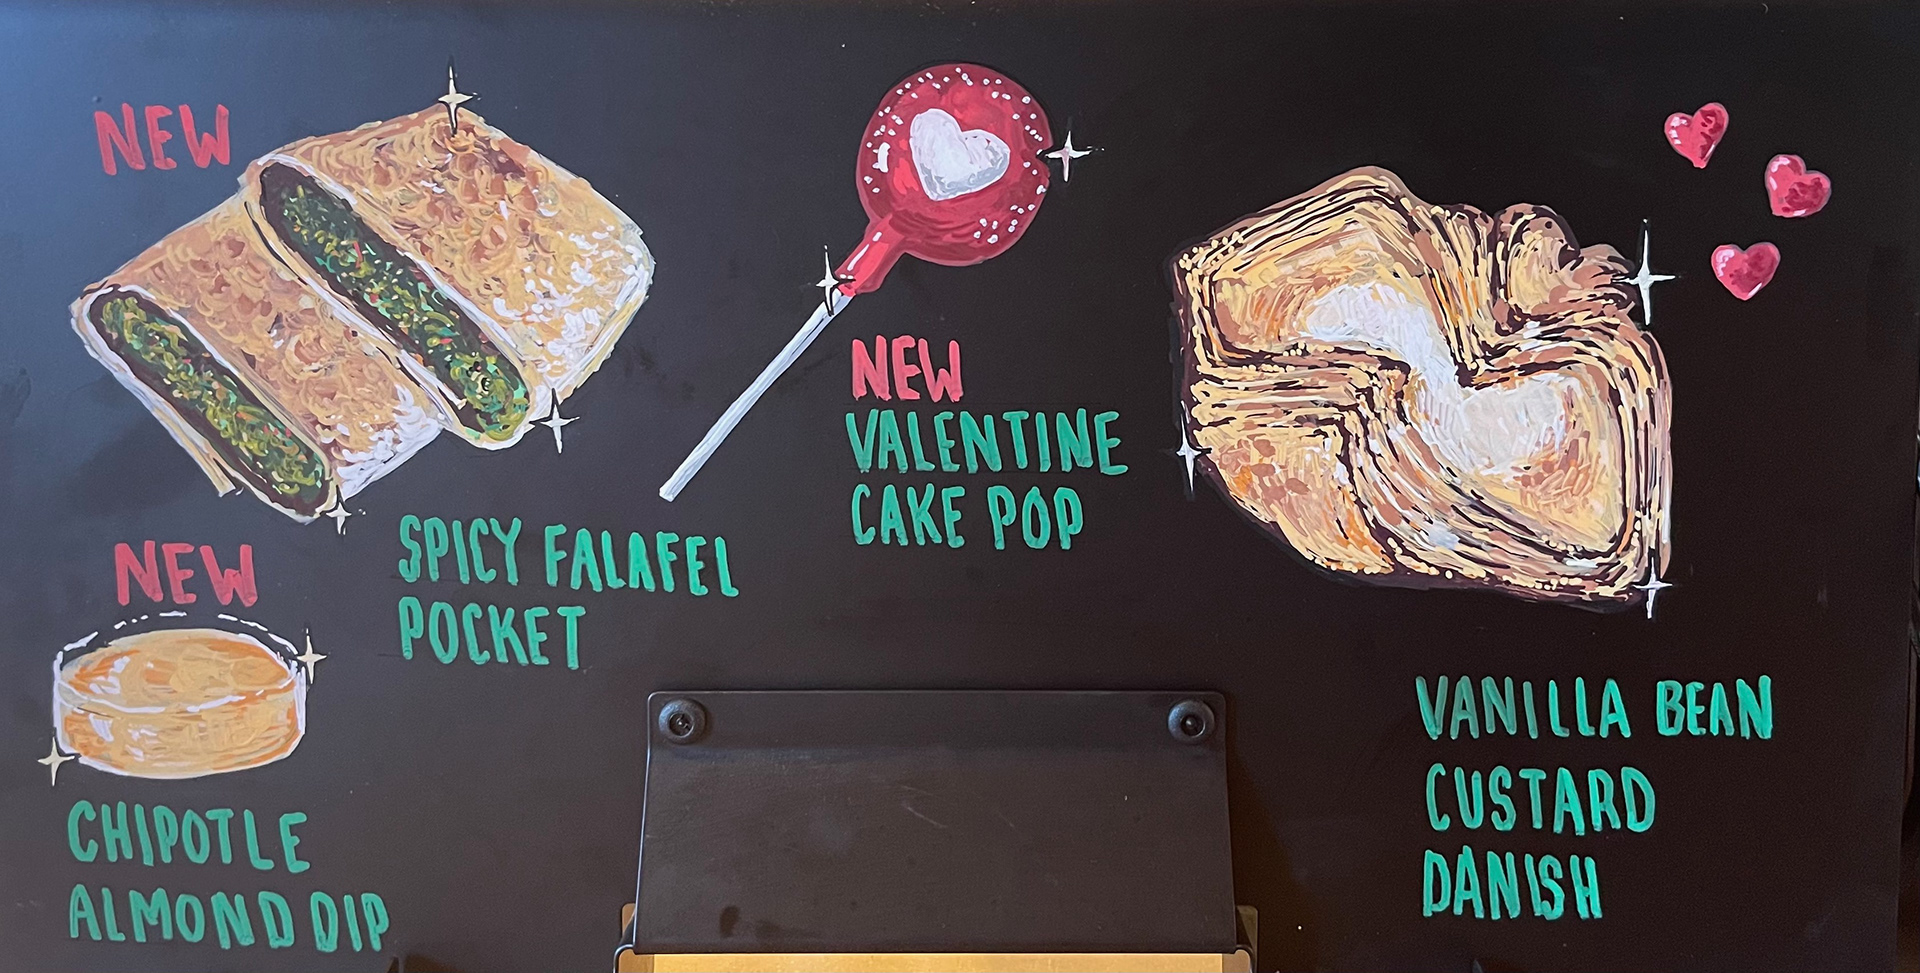 NEW
SPICY FALAFEL
POCKET
NEW
CHIPOTLE
ALMOND DIP
NEW
VALENTINE
CAKE POP
VANILLA BEAN
CUSTARD
DANISH